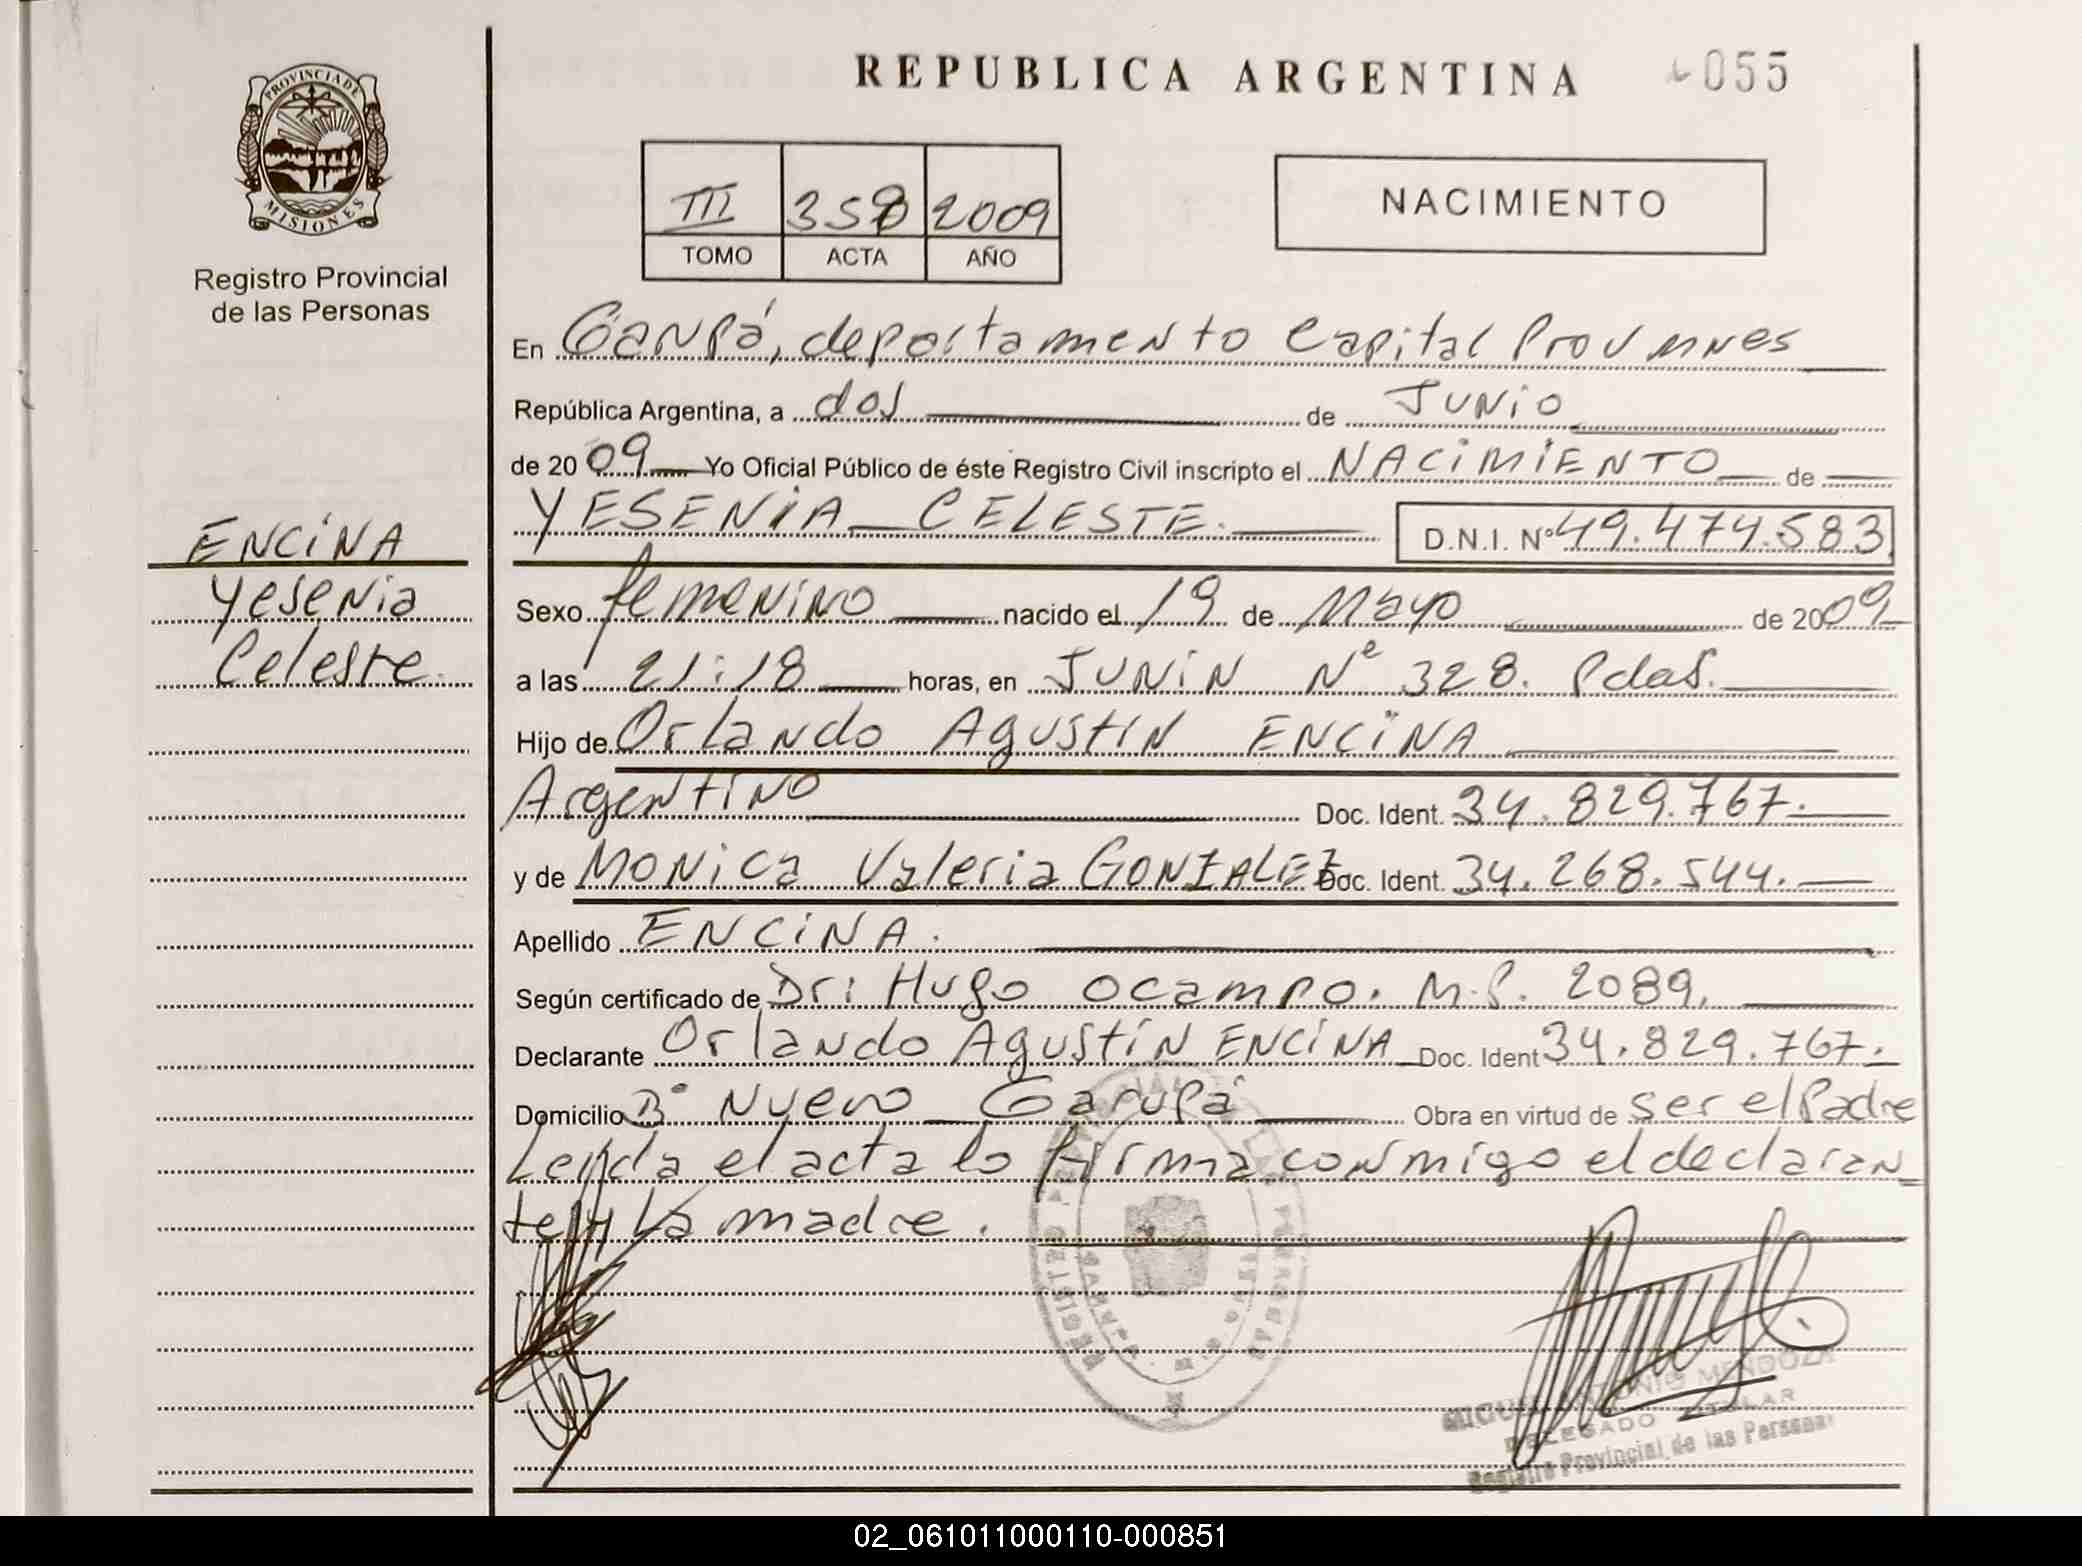 REPUBLICA ARGENTINA 055
PROVINCIA DE
MISIONES
Registro Provincial
de las Personas
III 358 2009
TOMO ACTA AÑO
NACIMIENTO
En Garupá, departamento Capital
República Argentina, a dos de Junio
de 2009 Yo Oficial Público de éste Registro Civil inscripto el NACIMIENTO de
YESENIA CELESTE. D.N.I. Nº 49.474.583
ENCINA
Yesenia
Celeste.
Sexo femenino nacido el 19 de Mayo de 2009
a las 21:18 horas, en JUNIN Nº 328. Pdas.
Hijo de Orlando Agustin ENCINA
Argentino Doc. Ident. 34.829.767.
y de MONICA Valeria GONZALEZ Doc. Ident. 34.268.544.
Apellido ENCINA.
Según certificado de Dr: Hugo Ocampo. M.P. 2089.
Declarante Orlando Agustín ENCINA Doc. Ident 34.829.767.
Domicilio Bº Nuevo Garupá Obra en virtud de ser el Padre
Leida el acta lo firma conmigo el declaran
te y la madre.
MIGUEL ANTONIO MENDOZA
DELEGADO TITULAR
Registro Provincial de las Personas
02_061011000110-000851